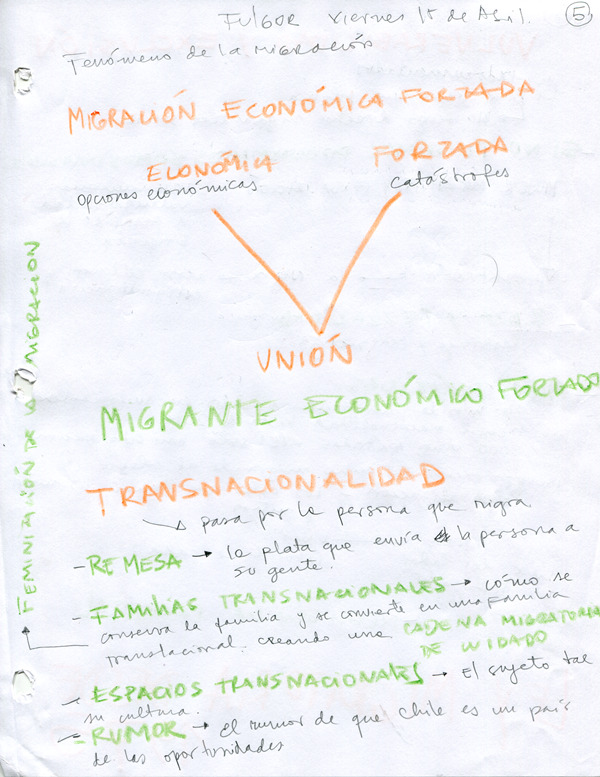 Fulgor Viernes 15 de Abril. 5
Fenómeno de la MIGRACIÓN
MIGRACIÓN ECONÓMICA FORZADA
ECONÓMICA FORZADA
Opciones económicas catástrofes
UNIÓN
MIGRANTE ECONÓMICO FORZADO
FEMINIZACIÓN DE LA MIGRACION
TRANSNACIONALIDAD
↳ pasa por la persona que migra
- REMESA → la plata que envía la persona a
su gente.
- FAMILIAS TRANSNACIONALES → cómo se
conserva la familia y se convierte en una Familia
translacional. creando una CADENA MIGRATORIA
DE CUIDADO
- ESPACIOS TRANSNACIONALES → El sujeto tae
su cultura.
- RUMOR → el rumor de que Chile es un país
de las oportunidades